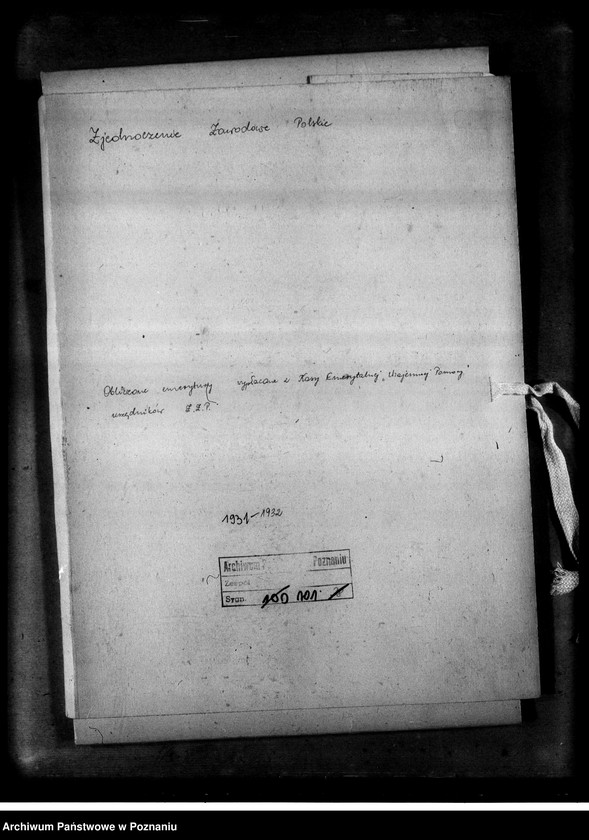 Zjednoczenie Zawodowe Polskie
Obliczone emerytury wypłacane z Kasy Emerytalnej „Wzajemnej Pomocy”
urzędników Z.Z.P.
1931-1932
Archiwum P Poznaniu
Zespół
Sygn. 100 101.
Archiwum Państwowe w Poznaniu